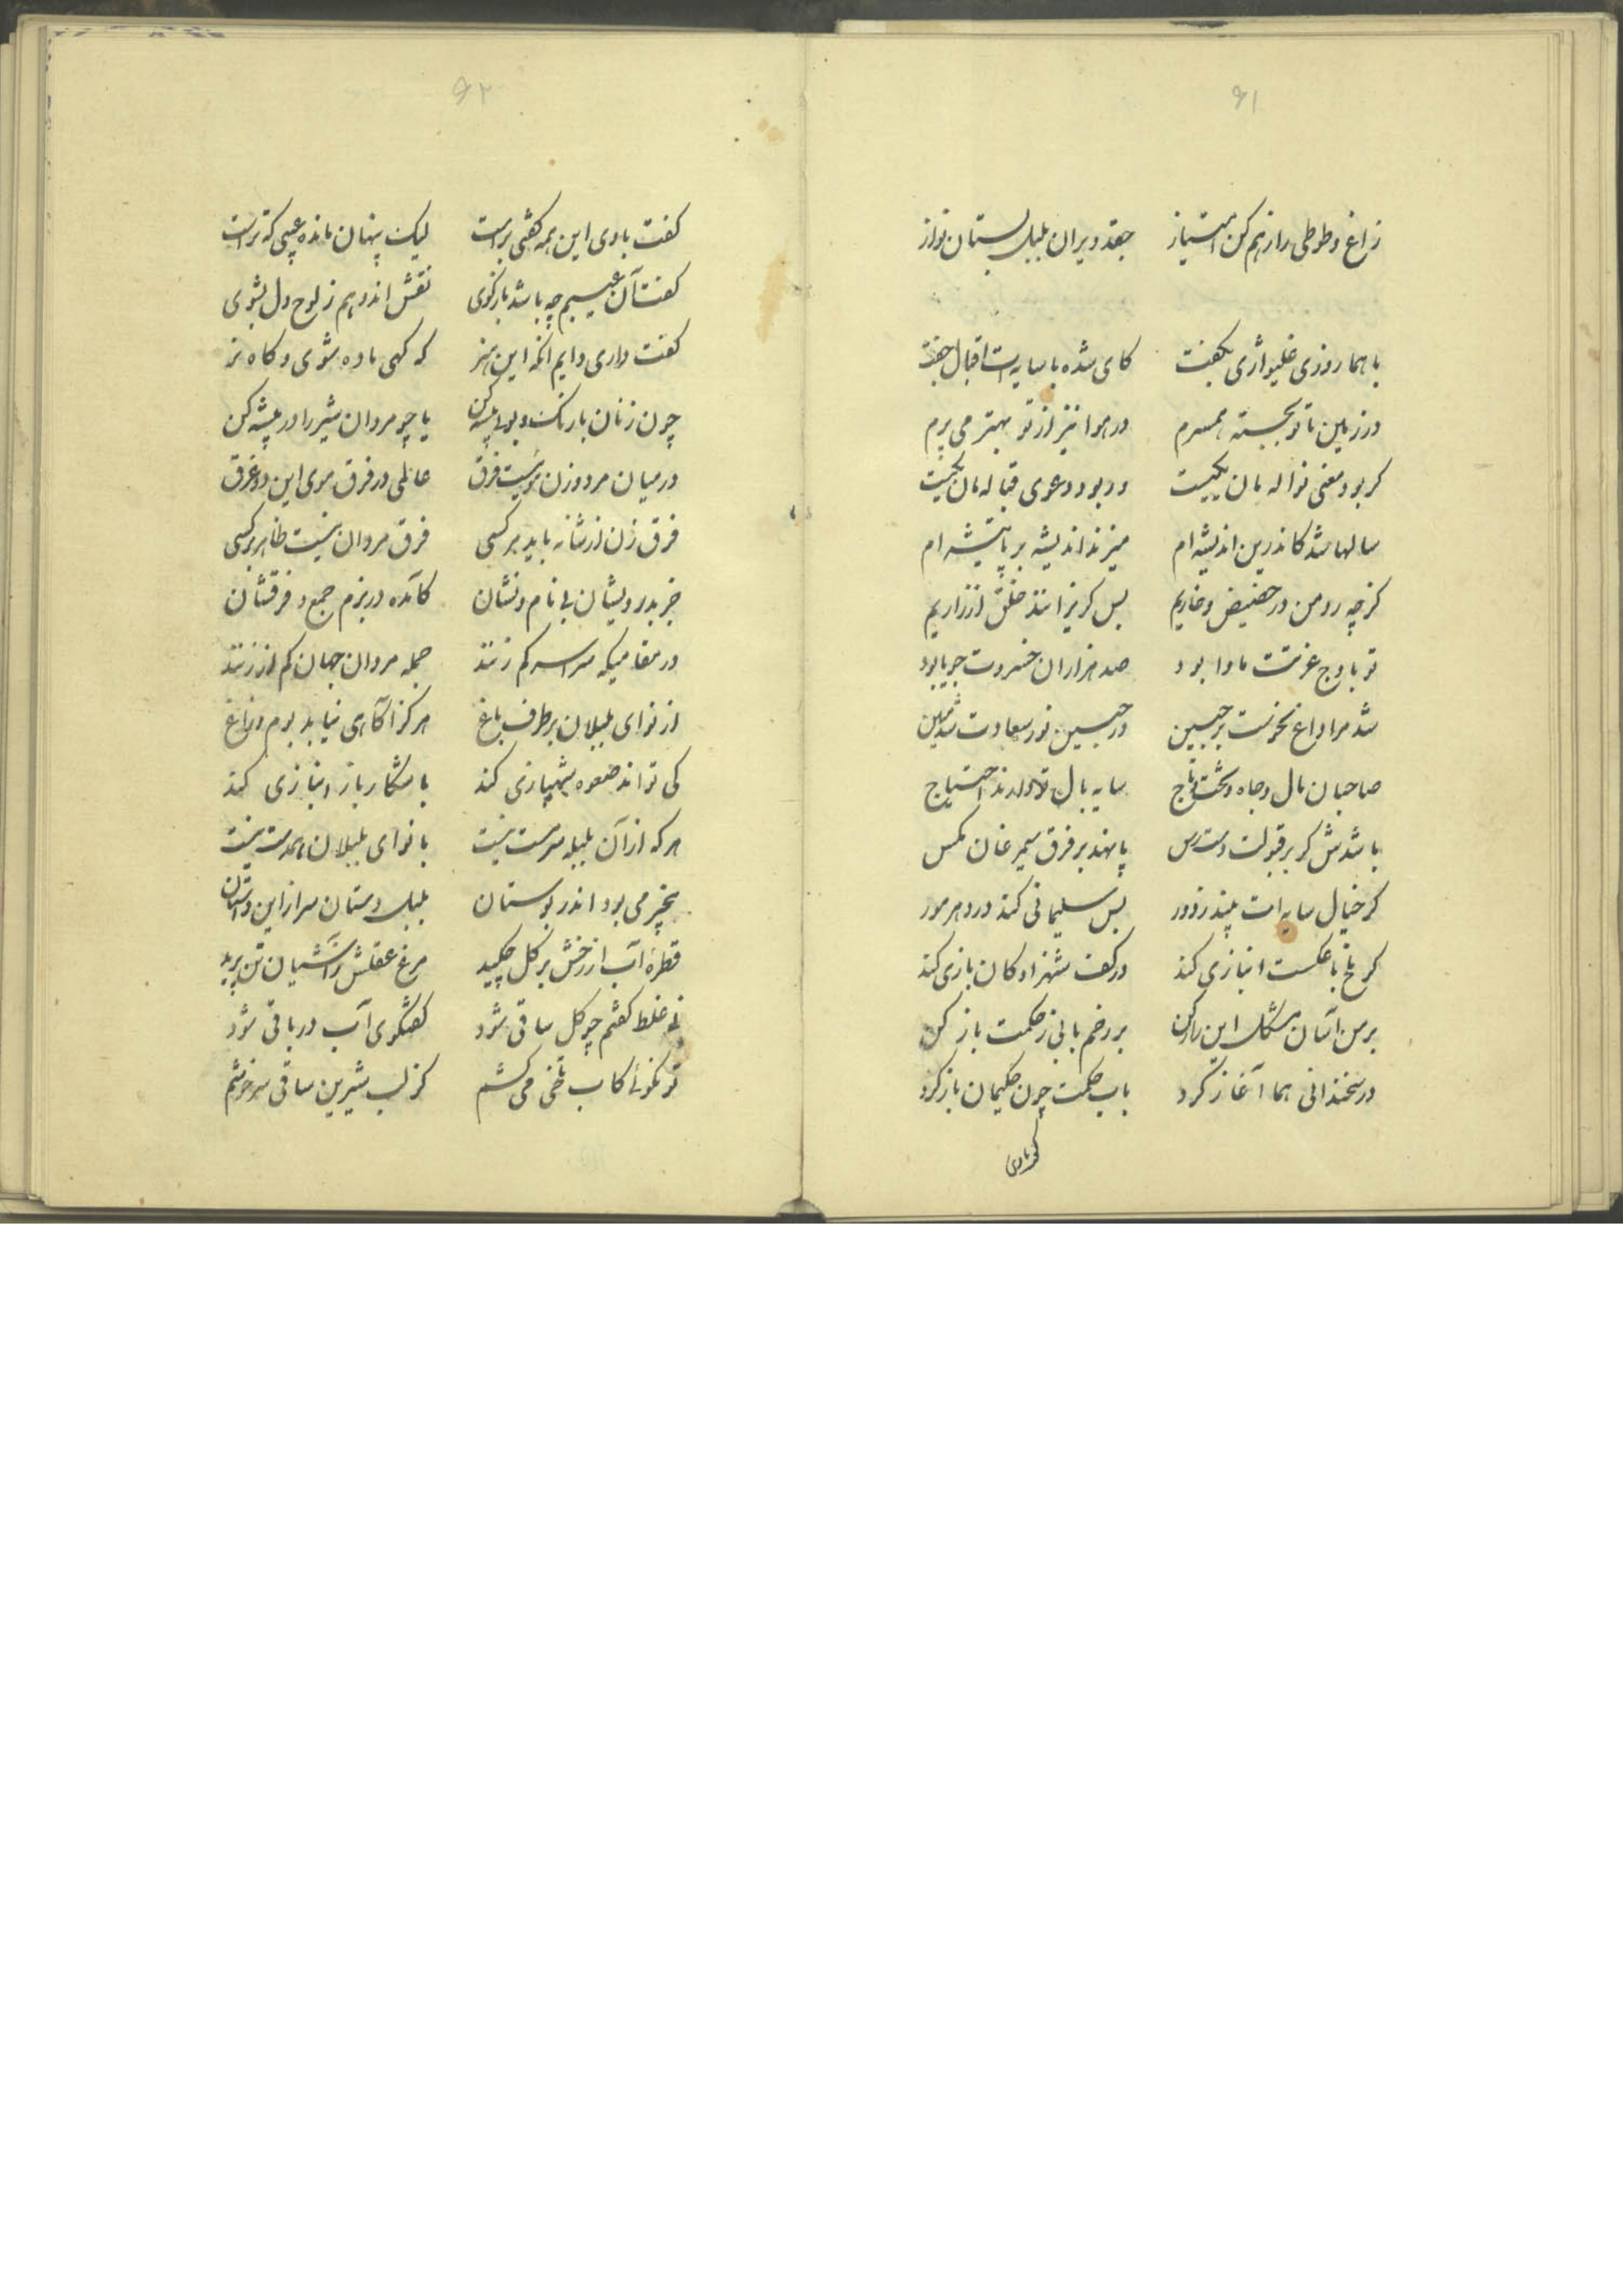 ۶۱
زاغ و طوطی را ز هم کن امتیاز جغد ویران بلبل بستان نواز
با هما روزی غلیواژی بگفت کای شده با سایه‌ات اقبال جفت
در زمین با تو بجسته همسرم در هوا نیز از تو بهتر می پرم
کر بود معنی نواله مان یکیست ور بود دعوی قباله مان یکیست
سالها شد کاندرین اندیشه ام میزند اندیشه بر پا تیشه ام
کرچه رو من در حضیض و خاریم بس کریزانند خلق از زاریم
تو باوج عزتت ماوا بود صد هزاران خسروت جویا بود
شد مرا داغ نحوست بر جبین در جبین نور سعادت شد مبین
صاحبان مال و جاه و تخت و تاج سایه بال تو دارند احتیاج
باشدش کر بر قبولت دسترس پا نهد بر فرق سیمرغان مکس
کر خیال سایه ات بیند ز دور بس سلیمانی کند در دهر مور
کر با عکست انبازی کند در کف شهزادکان بازی کند
بر من آسان مشکل این راز کن بر رخم بابی ز حکمت باز کن
در سخندانی هما آغاز کرد باب حکمت چون حکیمان باز کرد
گفت با وی
۶۲
کفت با وی این همه کفتی براست لیک پنهان مانده عیبی که تراست
کفت آن عیبم چه باشد بازکوی نقش اندوهم ز لوح دل بشوی
کفت داری دایم انکه این هنر که کهی ماده شوی و کاه نر
چون زنان با رنک و بویی پیشه کن یا چو مردان شیر را در بیشه کن
در میان مرد و زن موئیست فرق عالمی در فرق موی این دو غرق
فرق زن از شانه باید بر کسی فرق مردان نیست ظاهر بر کسی
جز بدرویشان بی نام و نشان کآمده در بزم جمع و فرقشان
در مقامیکه سراسر کم زنند جمله مردان جهان کم از زنند
از نوای بلبلان بر طرف باغ هرکز آکاهی نیابد بوم و زاغ
کی تواند صعوه شهبازی کند با شکار باز انبازی کند
هر که از آن بلبله سرمست نیست با نوای بلبلان همدست نیست
بیخبر می بود اندر بوستان بلبل دستان سرا زاین داستان
قطرهٔ آب از رخش بر کل چکید مرغ عقلش ز آشیان تن پرید
نی غلط کفتم چو کل ساقی شود کفتکوی آب در باقی شود
تو نکوئی کاب تلخی می کشم کز لب شیرین ساقی سرخوشم